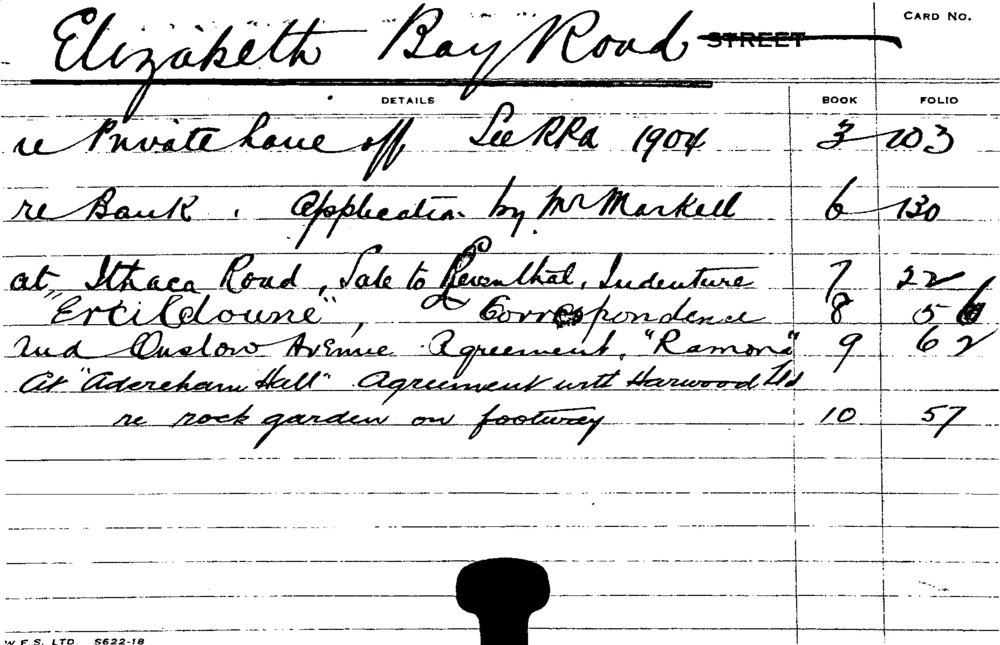 CARD NO.
Elizabeth Bay Road STREET
DETAILS BOOK FOLIO
re Private Lane off See RPA 1904 3 103
re Bank. Application by Mr Markell 6 130
at Ithaca Road, Sale to Leventhal, Indenture 7 22
"Ercildoune", Correspondence 8 56
and Onslow Avenue Agreement, "Ramona" 9 62
At "Adereham Hall" Agreement with Harwood Ltd
re rock garden on footway 10 57
W.F.S. LTD. S622-18